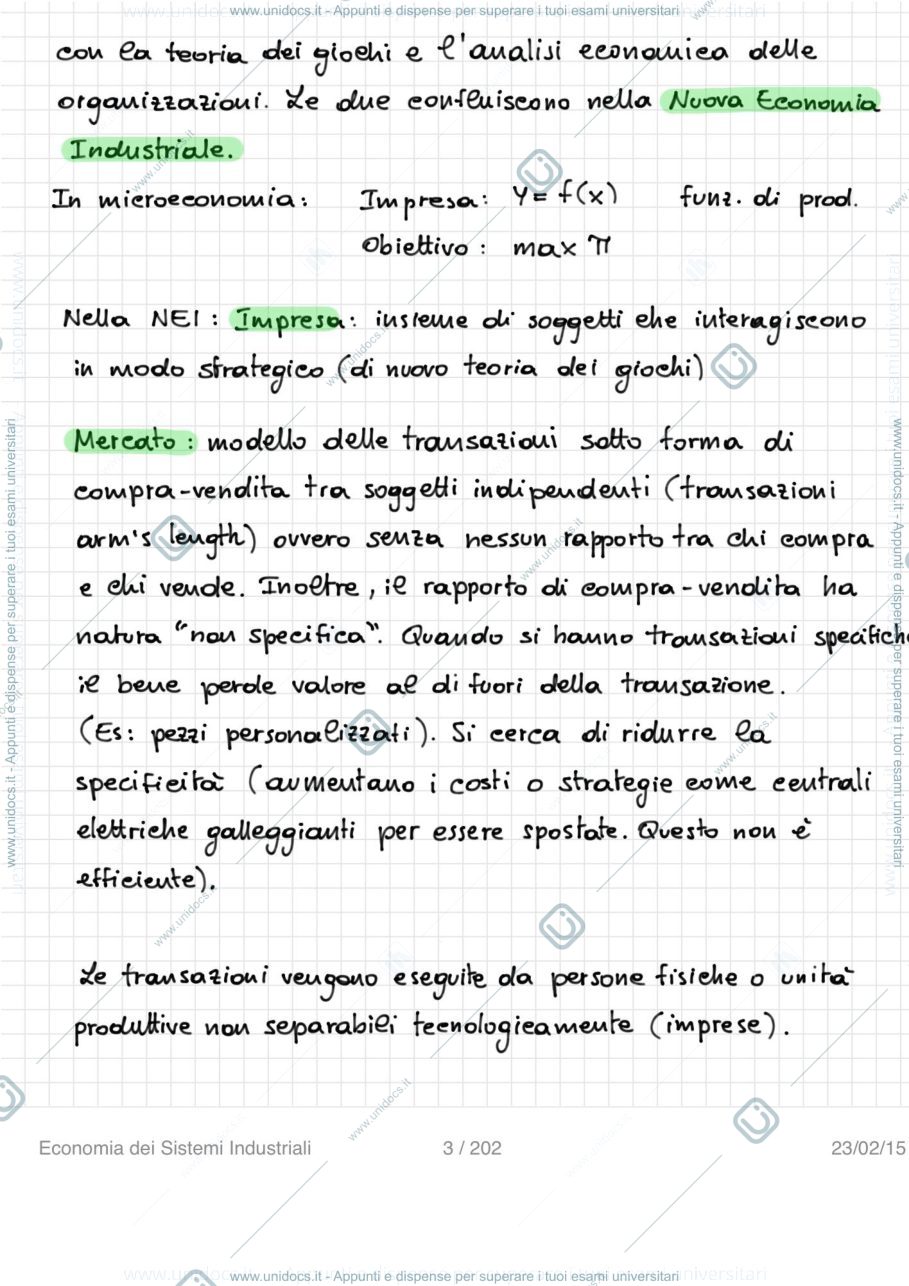 www.unidocs.it - Appunti e dispense per superare i tuoi esami universitari
con la teoria dei giochi e l'analisi economica delle
organizzazioni. Le due confluiscono nella Nuova Economia
Industriale.
In microeconomia: Impresa: Y = f(x) funz. di prod.
Obiettivo: max π
Nella NEI: Impresa: insieme di soggetti che interagiscono
in modo strategico (di nuovo teoria dei giochi)
Mercato: modello delle transazioni sotto forma di
compra-vendita tra soggetti indipendenti (transazioni
arm's length) ovvero senza nessun rapporto tra chi compra
e chi vende. Inoltre, il rapporto di compra-vendita ha
natura "non specifica". Quando si hanno transazioni specifiche
il bene perde valore al di fuori della transazione.
(Es: pezzi personalizzati). Si cerca di ridurre la
specificità (aumentano i costi o strategie come centrali
elettriche galleggianti per essere spostate. Questo non è
efficiente).
Le transazioni vengono eseguite da persone fisiche o unità
produttive non separabili tecnologicamente (imprese).
Economia dei Sistemi Industriali 3 / 202 23/02/15
www.unidocs.it - Appunti e dispense per superare i tuoi esami universitari
www.unidocs.it - Appunti e dispense per superare i tuoi esami universitari
www.unidocs.it - Appunti e dispense per superare i tuoi esami universitari